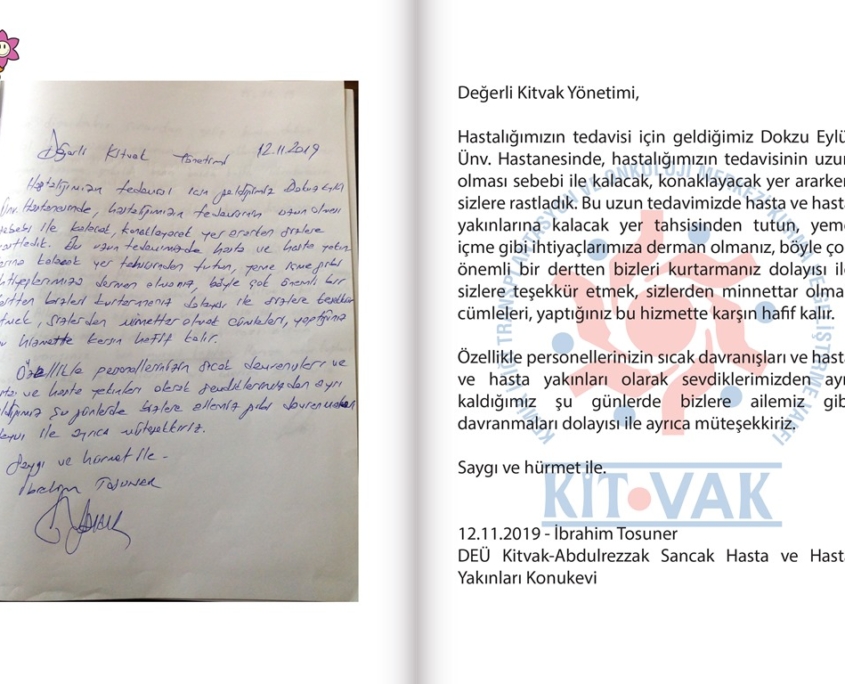 Değerli Kitvak Yönetimi 12.11.2019
Hastalığımızın tedavisi için geldiğimiz Dokuz Eylül
Ünv. Hastanesinde, hastalığımızın tedavisinin uzun olması
sebebi ile kalacak, konaklayacak yer ararken sizlere
rastladık. Bu uzun tedavimizde hasta ve hasta yakın
larına kalacak yer tahsisinden tutun, yeme içme gibi
ihtiyaçlarımıza derman olmanız, böyle çok önemli bir
dertten bizleri kurtarmanız dolayısı ile sizlere teşekkür
etmek, sizlerden minnettar olmak cümleleri, yaptığınız
bu hizmette karşın hafif kalır.
Özellikle personellerinizin sıcak davranışları ve
hasta ve hasta yakınları olarak sevdiklerimizden ayrı
kaldığımız şu günlerde bizlere ailemiz gibi davranmaları
dolayısı ile ayrıca müteşekkiriz.
Saygı ve hürmet ile -
İbrahim Tosuner
Değerli Kitvak Yönetimi,
Hastalığımızın tedavisi için geldiğimiz Dokzu Eylü
Ünv. Hastanesinde, hastalığımızın tedavisinin uzun
olması sebebi ile kalacak, konaklayacak yer ararken
sizlere rastladık. Bu uzun tedavimizde hasta ve hasta
yakınlarına kalacak yer tahsisinden tutun, yeme
içme gibi ihtiyaçlarımıza derman olmanız, böyle ço
önemli bir dertten bizleri kurtarmanız dolayısı ile
sizlere teşekkür etmek, sizlerden minnettar olma
cümleleri, yaptığınız bu hizmette karşın hafif kalır.
Özellikle personellerinizin sıcak davranışları ve hasta
ve hasta yakınları olarak sevdiklerimizden ayr
kaldığımız şu günlerde bizlere ailemiz gib
davranmaları dolayısı ile ayrıca müteşekkiriz.
Saygı ve hürmet ile.
KİT VAK
12.11.2019 - İbrahim Tosuner
DEÜ Kitvak-Abdulrezzak Sancak Hasta ve Hasta
Yakınları Konukevi